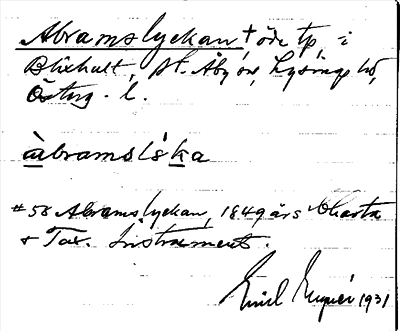 Abramslyckan † öde tp, i
Blixhult, St. Åby sn, Lysings hd,
Österg. l.
àbramslska
#58 Abramslyckan, 1849 års Charta
& Tax. Instrument.
Emil 1931